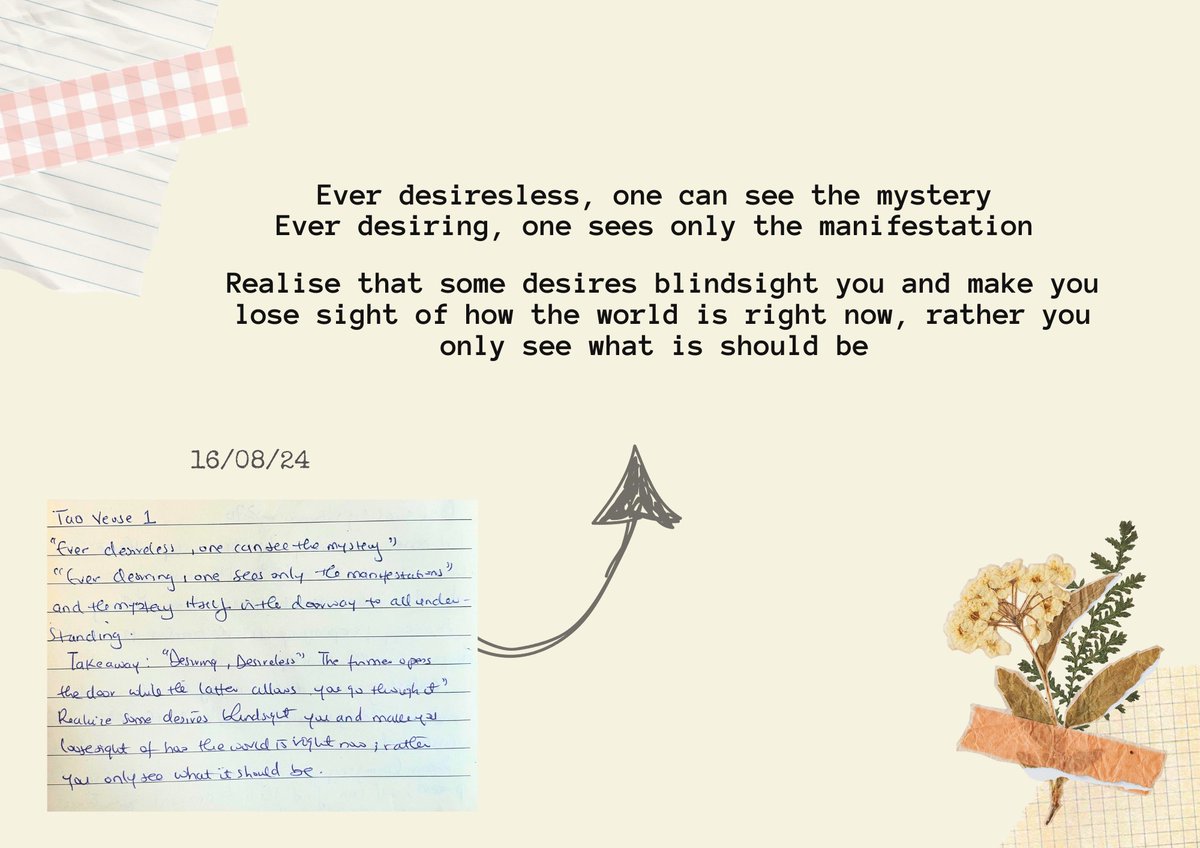 Ever desiresless, one can see the mystery
Ever desiring, one sees only the manifestation
Realise that some desires blindsight you and make you
lose sight of how the world is right now, rather you
only see what is should be
16/08/24
Tao Verse 1
"Ever desireless, one can see the mystery"
"Ever desiring, one sees only the manifestations"
and the mystery itself is the doorway to all under-
standing.
Takeaway: "Desiring, Desireless" The former opens
the door while the latter allows you go through it"
Realize some desires blindsight you and make you
lose sight of how the world is right now; rather
you only see what it should be.